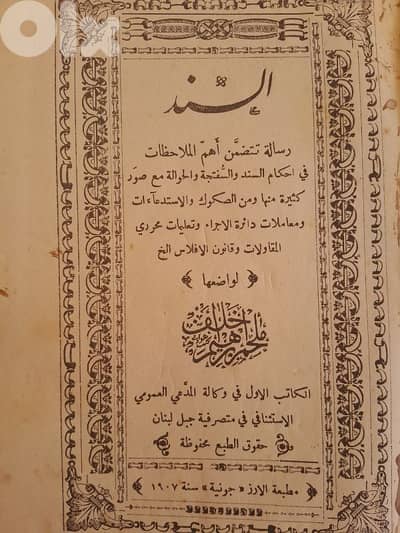 olx
السند
رسالة تتضمَّن أَهمّ الملاحظات
في احكام السند والسُّفتجة والحوالة مع صوَر
كثيرة منها ومن الصكوك والاستدعاءات
ومعاملات دائرة الاجراء وتعليمات محرري
المقاولات وقانون الإفلاس الخ
﴿ لواضعها ﴾
ملحم ابرهيم خلف
الكاتب الاول في وكالة المدَّعي العمومي
الاستئنافي في متصرفية جبل لبنان
حقوق الطبع محفوظة
مطبعة الارز «جونية» سنة ١٩٠٧